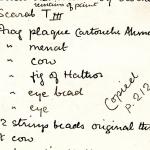 remains of paint
Scarab T III
Frag plaque Cartouche Ahmo
" menat
" cow
" fig of Hathor
" eye bead
" eye
2 strings beads original th
t cow
Copied p. 212